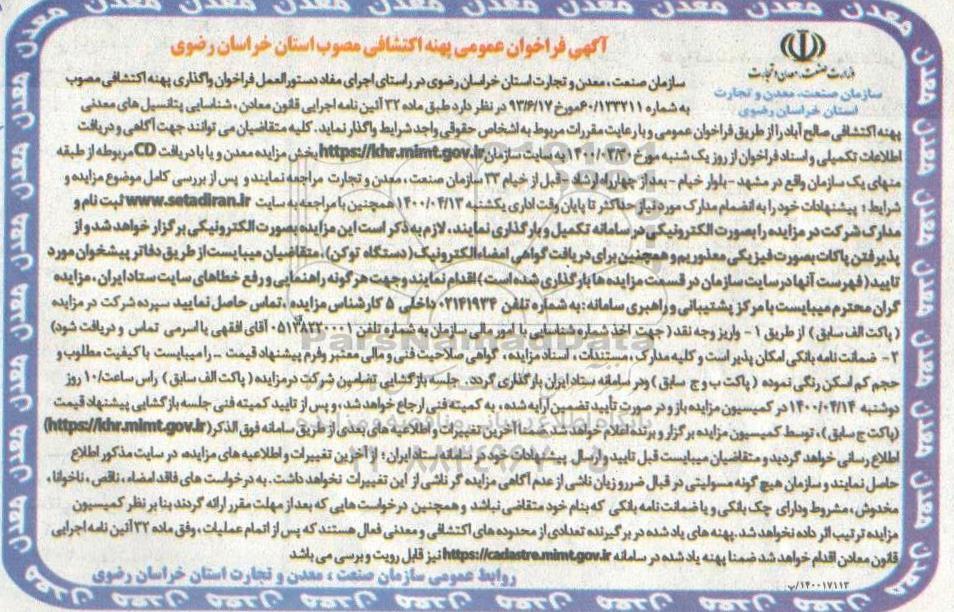 آگهی فراخوان عمومی پهنه اکتشافی مصوب استان خراسان رضوی
وزارت صنعت، معدن و تجارت
سازمان صنعت، معدن و تجارت
استان خراسان رضوی
سازمان صنعت، معدن و تجارت استان خراسان رضوی در راستای اجرای مفاد دستورالعمل فراخوان واگذاری پهنه اکتشافی مصوب
به شماره ۶۰/۱۳۳۲۱۱ مورخ ۹۳/۶/۱۷ در نظر دارد طبق ماده ۳۲ آئین نامه اجرایی قانون معادن، شناسایی پتانسیل های معدنی
پهنه اکتشافی صالح آباد را از طریق فراخوان عمومی و با رعایت مقررات مربوط به اشخاص حقوقی واجد شرایط واگذار نماید. کلیه متقاضیان می توانند جهت آگاهی و دریافت
اطلاعات تکمیلی و اسناد فراخوان از روز یک شنبه مورخ ۱۴۰۰/۰۳/۳۰ به سایت سازمان https://khr.mimt.gov.ir بخش مزایده معدن و یا با دریافت CD مربوطه از طبقه
منهای یک سازمان واقع در مشهد - بلوار خیام - بعد از چهارراه ارشاد - قبل از خیام ۳۳ سازمان صنعت، معدن و تجارت مراجعه نمایند و پس از بررسی کامل موضوع مزایده و
شرایط؛ پیشنهادات خود را به انضمام مدارک مورد نیاز حداکثر تا پایان وقت اداری یکشنبه ۱۴۰۰/۰۴/۱۳ همچنین با مراجعه به سایت www.setadiran.ir ثبت نام و
مدارک شرکت در مزایده را بصورت الکترونیکی در سامانه تکمیل و بارگذاری نمایند. لازم به ذکر است این مزایده بصورت الکترونیکی برگزار خواهد شد و از
پذیرفتن پاکات بصورت فیزیکی معذوریم و همچنین برای دریافت گواهی امضاء الکترونیک (دستگاه توکن)، متقاضیان میبایست از طریق دفاتر پیشخوان مورد
تایید (فهرست آنها در سایت سازمان در قسمت مزایده ها بارگذاری شده است) اقدام نمایند و جهت هرگونه راهنمایی و رفع خطاهای سایت ستاد ایران، مزایده
گران محترم میبایست با مرکز پشتیبانی و راهبری سامانه: به شماره تلفن ۰۲۱۴۱۹۳۴ داخلی ۵ کارشناس مزایده، تماس حاصل نمایید سپرده شرکت در مزایده
(پاکت الف سابق) از طریق ۱- واریز وجه نقد (جهت اخذ شماره شناسایی با امور مالی سازمان به شماره تلفن ۰۵۱۳۸۲۲۰۰۰۱ آقای افقهی یا اسرمی تماس و دریافت شود)
۲- ضمانت نامه بانکی امکان پذیر است و کلیه مدارک، مستندات، اسناد مزایده، گواهی صلاحیت فنی و مالی معتبر و فرم پیشنهاد قیمت ... را میبایست با کیفیت مطلوب و
حجم کم اسکن رنگی نموده (پاکت ب و ج سابق) و در سامانه ستاد ایران بارگذاری گردد. جلسه بازگشایی تضامین شرکت در مزایده (پاکت الف سابق) راس ساعت ۱۰/ روز
دوشنبه ۱۴۰۰/۰۴/۱۴ در کمیسیون مزایده باز و در صورت تأیید تضمین ارایه شده، به کمیته فنی ارجاع خواهد شد، و پس از تایید کمیته فنی جلسه بازگشایی پیشنهاد قیمت
(پاکت ج سابق)، توسط کمیسیون مزایده برگزار و برنده اعلام خواهد شد، ضمنا آخرین تغییرات و اطلاعیه های بعدی از طریق سامانه فوق الذکر (https://khr.mimt.gov.ir)
اطلاع رسانی خواهد گردید و متقاضیان میبایست قبل تایید و ارسال پیشنهادات خود در سامانه ستاد ایران؛ از آخرین تغییرات و اطلاعیه های مزایده، در سایت مذکور اطلاع
حاصل نمایند و سازمان هیچ گونه مسولیتی در قبال ضرر و زیان ناشی از عدم آگاهی مزایده گر ناشی از این تغییرات نخواهد داشت. به درخواست های فاقد امضاء، ناقص، ناخوانا،
مخدوش، مشروط و دارای چک بانکی و یا ضمانت نامه بانکی که بنام خود متقاضی نباشد و همچنین درخواست هایی که بعد از مهلت مقرر ارائه گردند بنا بر نظر کمیسیون
مزایده ترتیب اثر داده نخواهد شد. پهنه های یاد شده در برگیرنده تعدادی از محدوده های اکتشافی و معدنی فعال هستند که پس از اتمام عملیات، وفق ماده ۳۲ آئین نامه اجرایی
قانون معادن اقدام خواهد شد ضمنا پهنه یاد شده در سامانه https://cadastre.mimt.gov.ir نیز قابل رویت و بررسی می باشد
روابط عمومی سازمان صنعت، معدن و تجارت استان خراسان رضوی
۱۴۰۰۱۷۱۱۳/پ